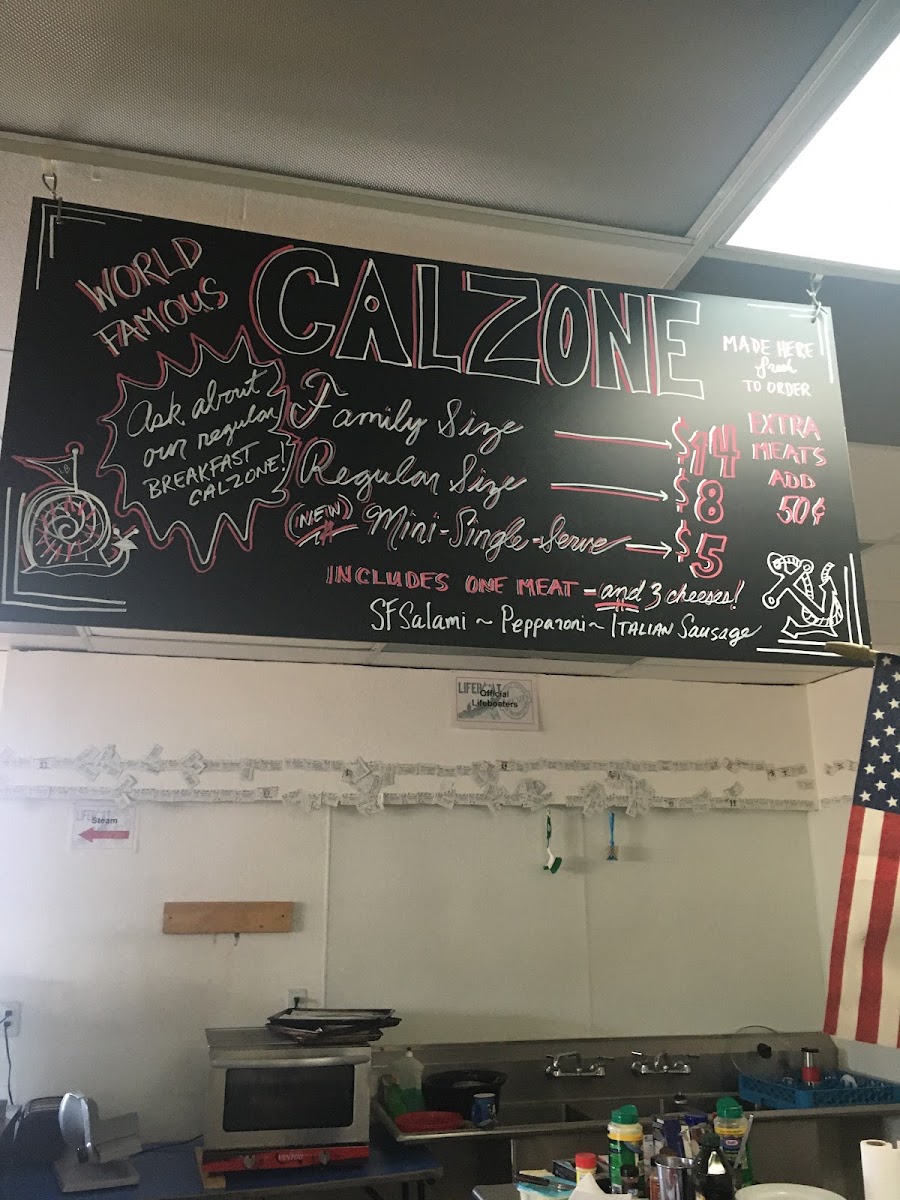 WORLD
FAMOUS
CALZONE
MADE HERE
fresh
TO ORDER
Ask about
our regular
BREAKFAST
CALZONE!
Family Size $14
Regular Size $8
(NEW) Mini-Single-Serve $5
EXTRA
MEATS
ADD
50¢
INCLUDES ONE MEAT - and 3 cheeses!
SF Salami ~ Pepparoni ~ ITALIAN Sausage
LB
LIFEBOAT
Official
Lifeboaters
Steam